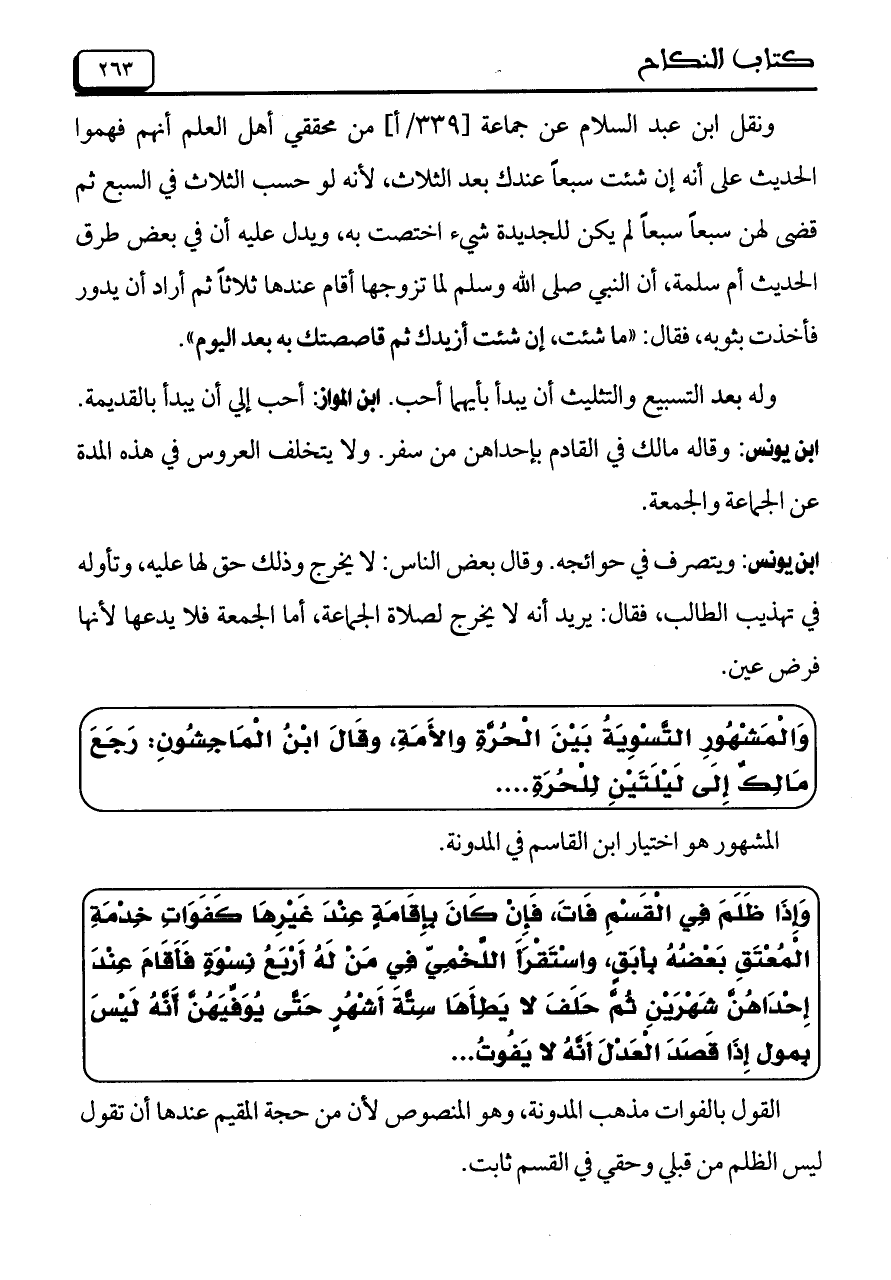 كتاب النكاح
٢٦٣
ونقل ابن عبد السلام عن جماعة [٣٣٩/ أ] من محققي أهل العلم أنهم فهموا
الحديث على أنه إن شئت سبعاً عندك بعد الثلاث، لأنه لو حسب الثلاث في السبع ثم
قضى لهن سبعاً سبعاً لم يكن للجديدة شيء اختصت به، ويدل عليه أن في بعض طرق
الحديث أم سلمة، أن النبي صلى الله وسلم لما تزوجها أقام عندها ثلاثاً ثم أراد أن يدور
فأخذت بثوبه، فقال: «ما شئت، إن شئت أزيدك ثم قاصصتك به بعد اليوم».
وله بعد التسبيع والتثليث أن يبدأ بأيها أحب. ابن المواز: أحب إلي أن يبدأ بالقديمة.
ابن يونس: وقاله مالك في القادم بإحداهن من سفر. ولا يتخلف العروس في هذه المدة
عن الجماعة والجمعة.
ابن يونس: ويتصرف في حوائجه. وقال بعض الناس: لا يخرج وذلك حق لها عليه، وتأوله
في تهذيب الطالب، فقال: يريد أنه لا يخرج لصلاة الجماعة، أما الجمعة فلا يدعها لأنها
فرض عين.
وَالْمَشْهُورِ التَّسْوِيَةُ بَيْنَ الْحُرَّةِ والأَمَةِ، وقَالَ ابْنُ الْمَاجِشُونِ: رَجَعَ
مَالِكٌ إِلَى لَيْلَتَيْنِ لِلْحُرَةِ....
المشهور هو اختيار ابن القاسم في المدونة.
وَإِذَا ظَلَمَ فِي الْقَسْمِ فَاتَ، فَإِنْ كَانَ بِإِقَامَةٍ عِنْدَ غَيْرِهَا كَفَوَاتِ خِدْمَةِ
الْمُعْتَقِ بَعْضُهُ بِأَبَقٍ، واسْتَقْرَأَ اللَّخْمِيّ فِي مَنْ لَهُ أَرْبَعُ نِسْوَةٍ فَأَقَامَ عِنْدَ
إِحْدَاهُنَّ شَهْرَيْنِ ثُمَّ حَلَفَ لا يَطَأهَا سِتَّةَ أَشْهُرٍ حَتَّى يُوَفِّيَهُنَّ أَنَّهُ لَيْسَ
بِمول إِذَا قَصَدَ الْعَدْلَ أَنَّهُ لا يَفُوتُ...
القول بالفوات مذهب المدونة، وهو المنصوص لأن من حجة المقيم عندها أن تقول
ليس الظلم من قبلي وحقي في القسم ثابت.